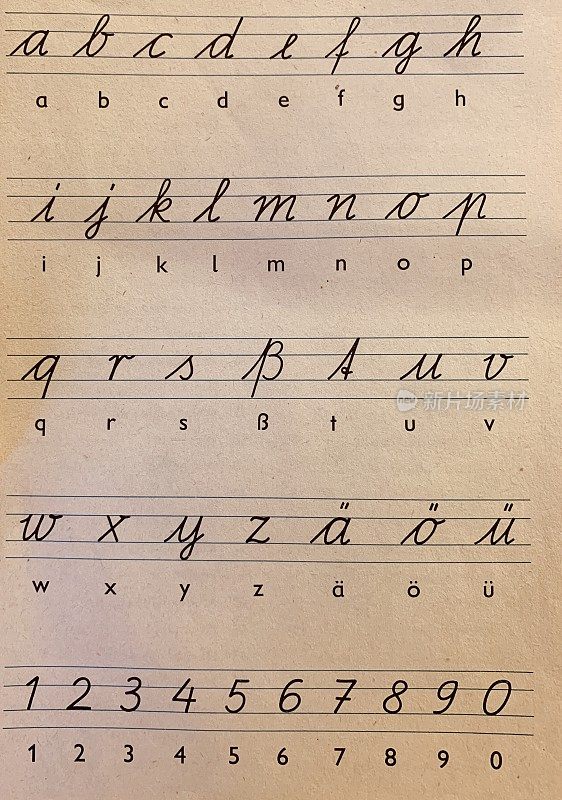 a b c d e f g h
a b c d e f g h
i j k l m n o p
i j k l m n o p
q r s ß t u v
q r s ß t u v
新片场素材
w x y z ä ö ü
w x y z ä ö ü
1 2 3 4 5 6 7 8 9 0
1 2 3 4 5 6 7 8 9 0